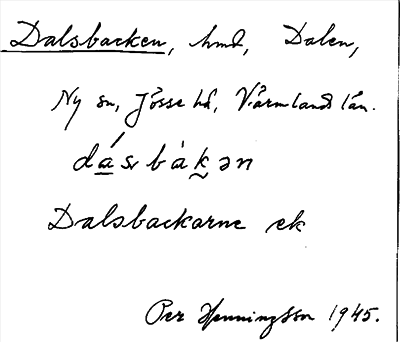 Dalsbacken, hmd, Dalen,
Ny sn, Jösse hd, Värmlands län.
dásbàkən
Dalsbackarne ek
Per Henningsson 1945.